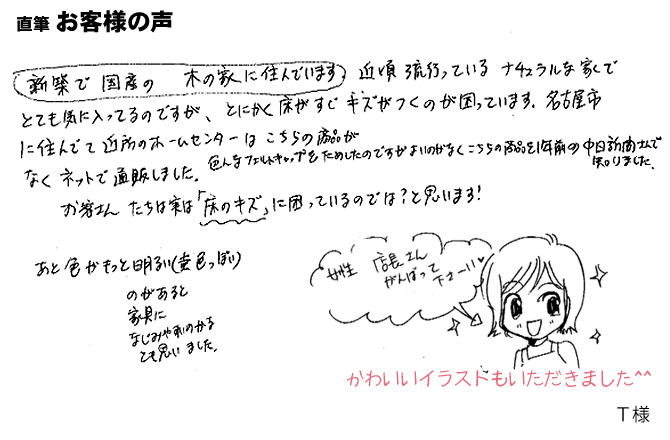 直筆 お客様の声
新築で 国産の 木の家に住んでいます。近頃 流行っている ナチュラルな家で
とても気に入ってるのですが、とにかく床がすぐ キズがつくのが困っています。名古屋市
に住んでて 近所のホームセンターは こちらの商品が
なく ネットで通販しました。色んなフェルトキャップをためしたのですがよいのがなくこちらの商品を1年前の中日新聞さんで
知りました。
お客さんたちは実は「床のキズ」に困っているのでは?と思います!
あと色がもっと明るい(黄色っぽい)
のがあると
家具に
なじみやすいのかな
とも思いました。
女性 店長さん
がんばって
下さーい♥
かわいいイラストもいただきました^^
T様